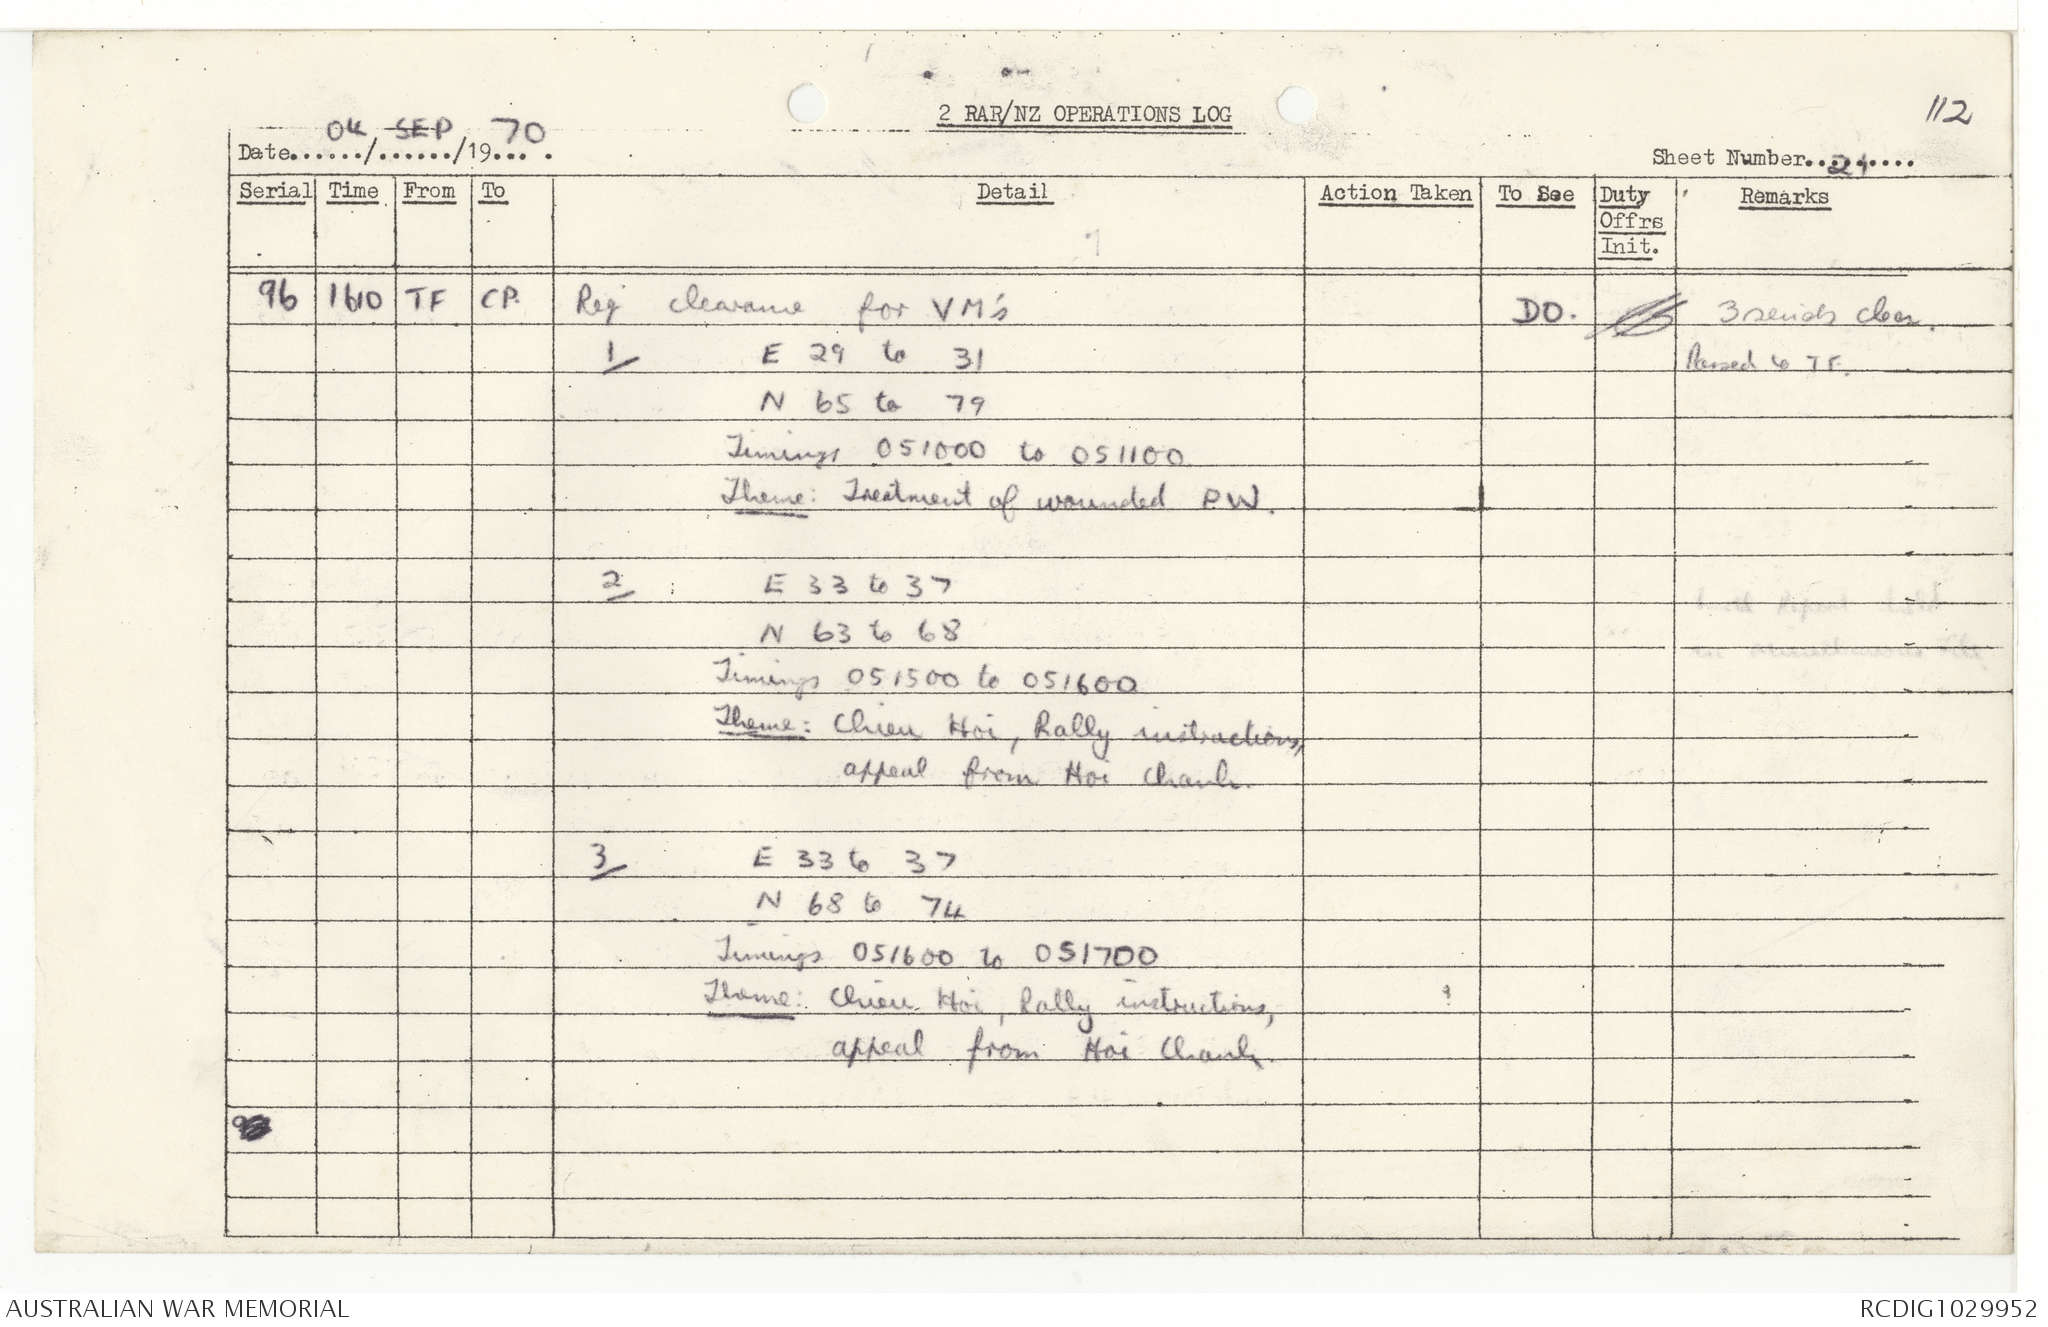 112
2 RAR/NZ OPERATIONS LOG
Date 04/SEP/1970
Sheet Number 21
Serial Time From To Detail Action Taken To See Duty Offrs Init. Remarks
96 1610 TF CP. Req clearance for VM's DO. 3 serials clear.
1/ E 29 to 31 Passed to TF.
N 65 to 79
Timings 051000 to 051100
Theme: Treatment of wounded PW.
2/ E 33 to 37
N 63 to 68
Timings 051500 to 051600
Theme: Chieu Hoi, Rally instructions,
appeal from Hoi Chanh.
3/ E 33 to 37
N 68 to 74
Timings 051600 to 051700
Theme: Chieu Hoi, Rally instructions,
appeal from Hoi Chanh.
AUSTRALIAN WAR MEMORIAL
RCDIG1029952